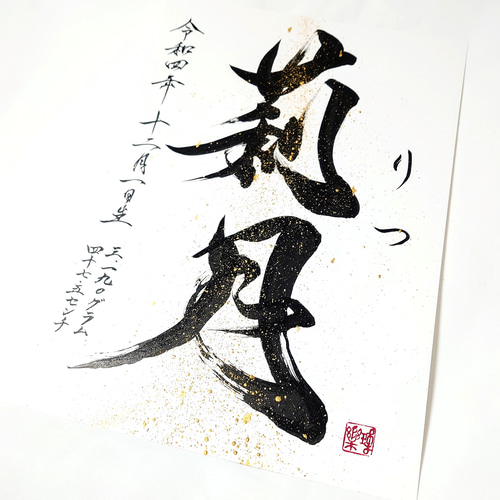 りつ
莉月
令和四年十二月一日生
三一九〇グラム
四十七.五センチ